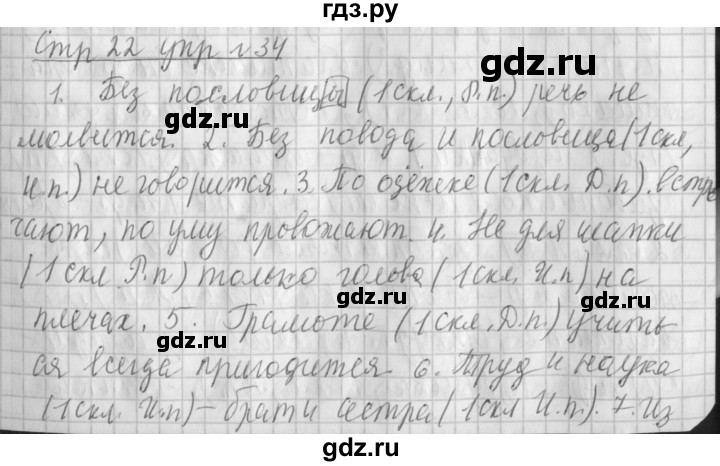 гдз.ру
Стр 22 упр №34
gdz.ru
1. Без пословицы (1скл., Р.п.) речь не
gdz.ru
молвится. 2. Без повода и пословица (1скл,
И.п.) не говорится. 3. По одёжке (1скл. Д.п). встре
gdz.ru
чают, по уму провожают. 4. Не для шапки
(1скл Р.п) только голова (1скл. И.п) на
gdz.ru
плечах. 5 Грамоте (1скл, Д.п.) учить
gdz.ru
ся всегда пригодится 6. Труд и наука
(1скл. И.п) – брат и сестра (1скл И.п). 7. Из
gdz.ru
gdz.ru